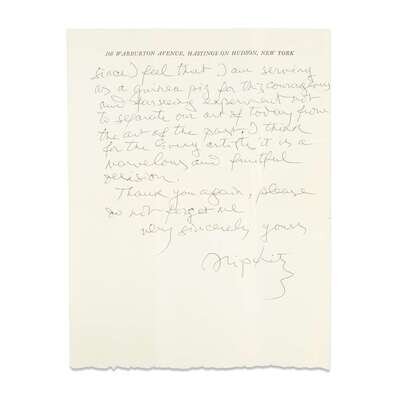 168 WARBURTON AVENUE, HASTINGS-ON HUDSON, NEW YORK
since I feel that I am serving
as a guinea pig for this courageous
and farseeing experiment not
to separate our art of today from
the art of the past. I think
for the living artist it is a
marvelous and fruitful
decision.
Thank you again, please
do not forget me
very sincerely yours
JLipchitz